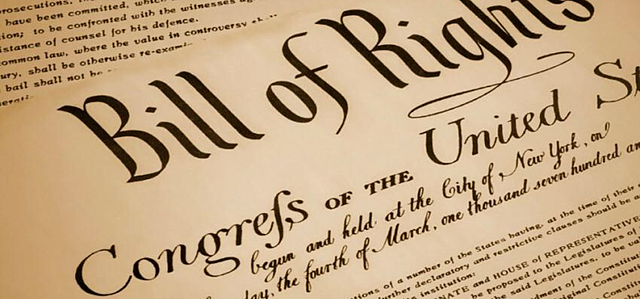 prosecutions,
have been committed, which
tion; to be confronted with the witnesses ag
istance of counsel for his defence.
common law, where the value in controversy sh
ury, shall be otherwise re-exami
bail shall not be
Bill of Rights
Congreſs OF THE United St
begun and held at the City of New York, on
day, the fourth of March, one thousand seven hundred an
tions of a number of the States having, at the time of the
further declaratory and restrictive clauses should be a
institution:
NATE and HOUSE of REPRESENTATIV
be proposed to the Legislatures of
said Legislatures, to be
of the Constitu